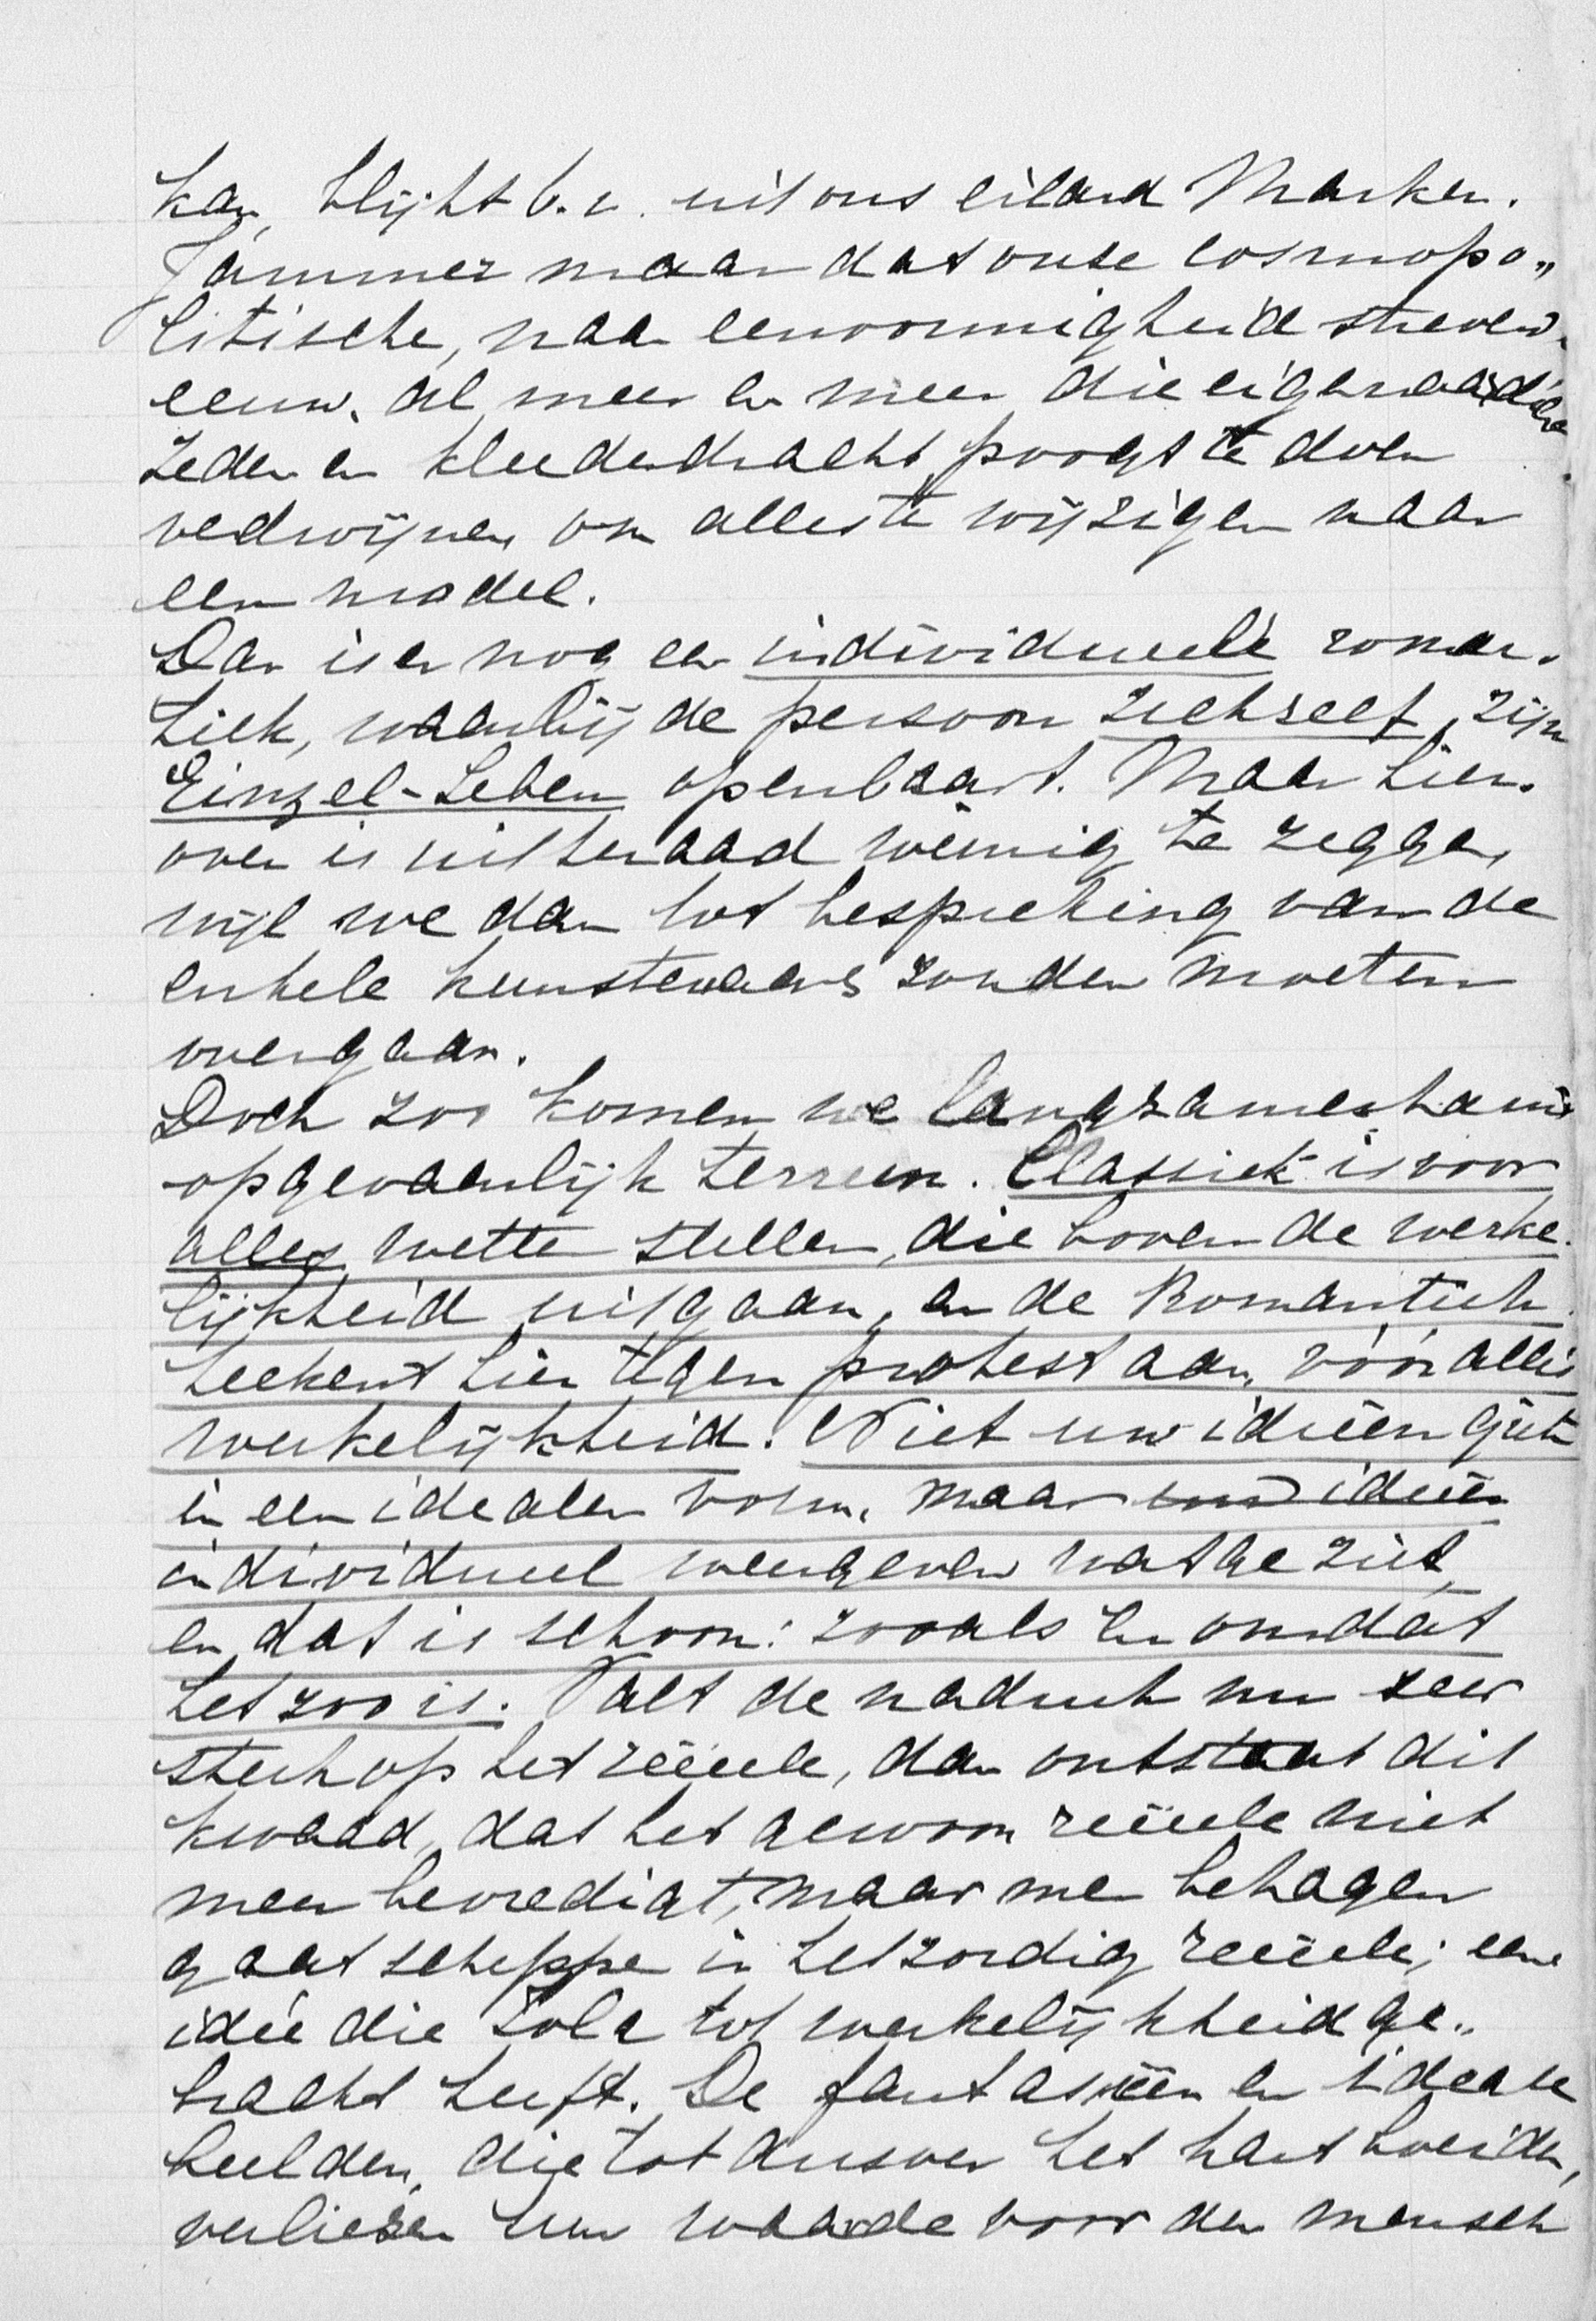 kan, blijkt b.v. uit ons eiland Marken.
Jammer maar dat onze cosmopo„
litische, naar eenvormigheid strevend
eeuw, al meer en meer die eigenaardige
zeden en kleederdracht poogt te doen
verdwijnen om alles te wijzigen naar
een model.
Dan is er nog een individueele roman-
tiek, waarbij de persoon zichself, zijn
Einzel-Leben openbaart. Maar hier-
over is uiteraard weinig te zeggen,
wijl we dan tot bespreking van de
enkele kunstenaars zouden moeten
overgaan.
Doch zoo komen we langzamerhand
op gevaarlijk terrein. Classiek is voor
alles wetten stellen, die boven de werke-
lijkheid uitgaan, en de Romantiek
teekent hier tegen protest aan, vóór alles
werkelijkheid. Niet uw ideeën giet
in een idealen vorm, maar uw ideeën
individueel weergeven wat ge ziet,
en dat is schoon: zooals en omdat
het zoo is. Valt de nadruk nu zeer
sterk op het reëele, dan ontstaat dit
kwaad, dat het gewoon reëele niet
meer bevredigt, maar men behagen
gaat scheppen in het zondig reëele; eene
idée die Zola tot werkelijkheid ge„
bracht heeft. De fantasieën en ideale
beelden, die tot dusver het hart boeiden,
verliezen hun waarde voor den mensch